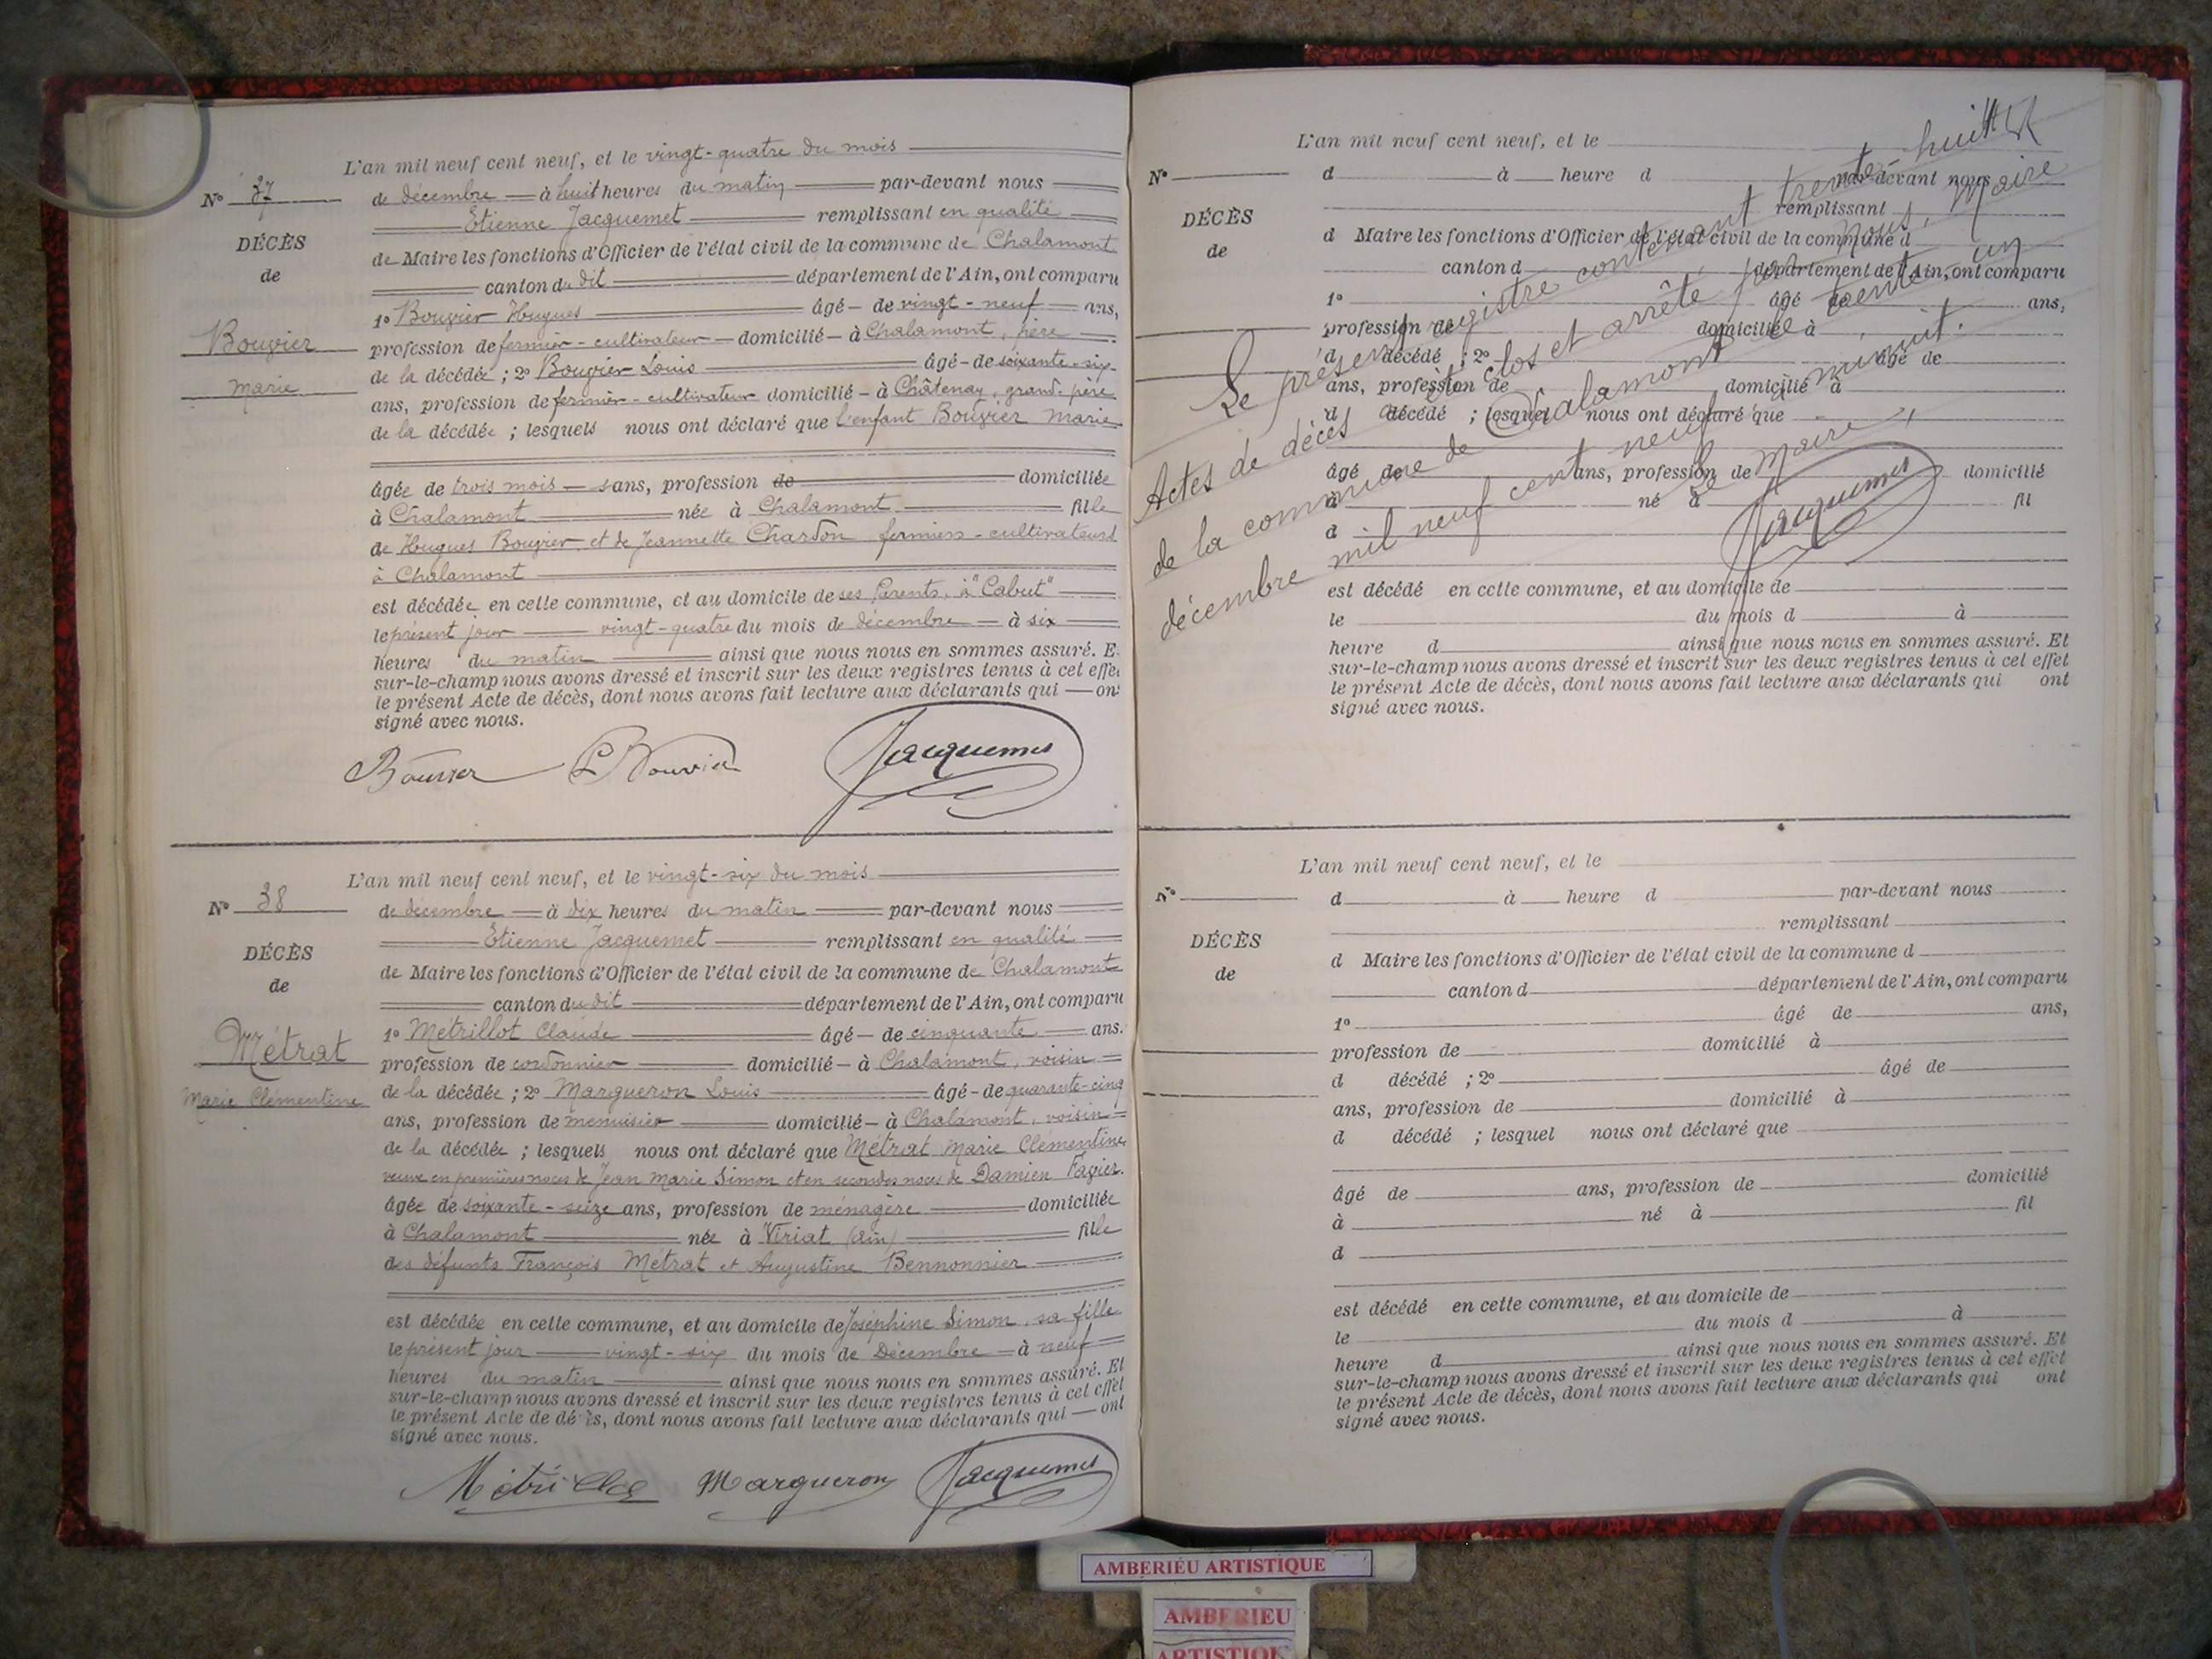 L'an mil neuf cent neuf, et le vingt-quatre du mois
N° 37
de décembre — à huit heures du matin — par-devant nous
Etienne Jacquemet — remplissant en qualité
DÉCÈS
de Maire les fonctions d'Officier de l'état civil de la commune de Chalamont
de
canton du dit — département de l'Ain, ont comparu
1° Bouvier Hugues — âgé — de vingt-neuf — ans,
Bouvier
profession de fermier-cultivateur — domicilié — à Chalamont, père
de la décédée ; 2° Bouvier Louis — âgé - de soixante-six
Marie
ans, profession de fermier-cultivateur domicilié - à Châtenay, grand-père
de la décédée ; lesquels nous ont déclaré que l'enfant Bouvier Marie
âgée de trois mois — sans, profession de — domiciliée
à Chalamont — née à Chalamont — fille
de Hugues Bouvier et de Jeannette Chardon fermiers-cultivateurs
à Chalamont
est décédée en cette commune, et au domicile de ses Parents, à "Cabut"
le présent jour — vingt-quatre du mois de décembre — à six
heures du matin — ainsi que nous nous en sommes assuré. E
sur-le-champ nous avons dressé et inscrit sur les deux registres tenus à cet effe
le présent Acte de décès, dont nous avons fait lecture aux déclarants qui — on
signé avec nous.
Bouvier L Bouvier Jacquemet
L'an mil neuf cent neuf, et le vingt-six du mois
N° 38
de décembre — à dix heures du matin — par-devant nous
Etienne Jacquemet — remplissant en qualité
DÉCÈS
de Maire les fonctions d'Officier de l'état civil de la commune de Chalamont
de
canton du dit — département de l'Ain, ont comparu
1° Métrillot Claude — âgé — de cinquante — ans.
Métrat
profession de cordonnier — domicilié — à Chalamont, voisin
Marie Clémentine
de la décédée ; 2° Margueron Louis — âgé - de quarante-cinq
ans, profession de menuisier — domicilié — à Chalamont, voisin
de la décédée ; lesquels nous ont déclaré que Métrat Marie Clémentine
veuve en premières noces de Jean Marie Simon et en secondes noces de Damien Fagier.
âgée de soixante-seize ans, profession de ménagère — domiciliée
à Chalamont — née à Viriat (Ain) — fille
des défunts François Métrat et Augustine Bennonnier
est décédée en cette commune, et au domicile de Joséphine Simon, sa fille
le présent jour — vingt-six du mois de Décembre — à neuf
heures du matin — ainsi que nous nous en sommes assuré. Et
sur-le-champ nous avons dressé et inscrit sur les deux registres tenus à cet effet
le présent Acte de décès, dont nous avons fait lecture aux déclarants qui — ont
signé avec nous.
Métrillot Margueron Jacquemet
L'an mil neuf cent neuf, et le
N°
d à heure d par-devant nous
remplissant
DÉCÈS
d Maire les fonctions d'Officier de l'état civil de la commune d
de
canton d département de l'Ain, ont comparu
1° âgé de ans,
profession de domicilié à
d décédé ; 2° âgé de
ans, profession de domicilié à
d décédé ; lesquel nous ont déclaré que
âgé de ans, profession de domicilié
à né à fil
d
est décédé en cette commune, et au domicile de
le du mois d à
heure d ainsi que nous nous en sommes assuré. Et
sur-le-champ nous avons dressé et inscrit sur les deux registres tenus à cet effet
le présent Acte de décès, dont nous avons fait lecture aux déclarants qui ont
signé avec nous.
Le présent registre contenant trente-huit
Actes de décès a été clos et arrêté par Nous, Maire
de la commune de Chalamont le trente-un
décembre mil neuf cent neuf à minuit.
Le Maire,
Jacquemet
L'an mil neuf cent neuf, et le
N°
d à heure d par-devant nous
remplissant
DÉCÈS
d Maire les fonctions d'Officier de l'état civil de la commune d
de
canton d département de l'Ain, ont comparu
1° âgé de ans,
profession de domicilié à
d décédé ; 2° âgé de
ans, profession de domicilié à
d décédé ; lesquel nous ont déclaré que
âgé de ans, profession de domicilié
à né à fil
d
est décédé en cette commune, et au domicile de
le du mois d à
heure d ainsi que nous nous en sommes assuré. Et
sur-le-champ nous avons dressé et inscrit sur les deux registres tenus à cet effet
le présent Acte de décès, dont nous avons fait lecture aux déclarants qui ont
signé avec nous.
AMBERIEU ARTISTIQUE
AMBERIEU
ARTISTIQUE